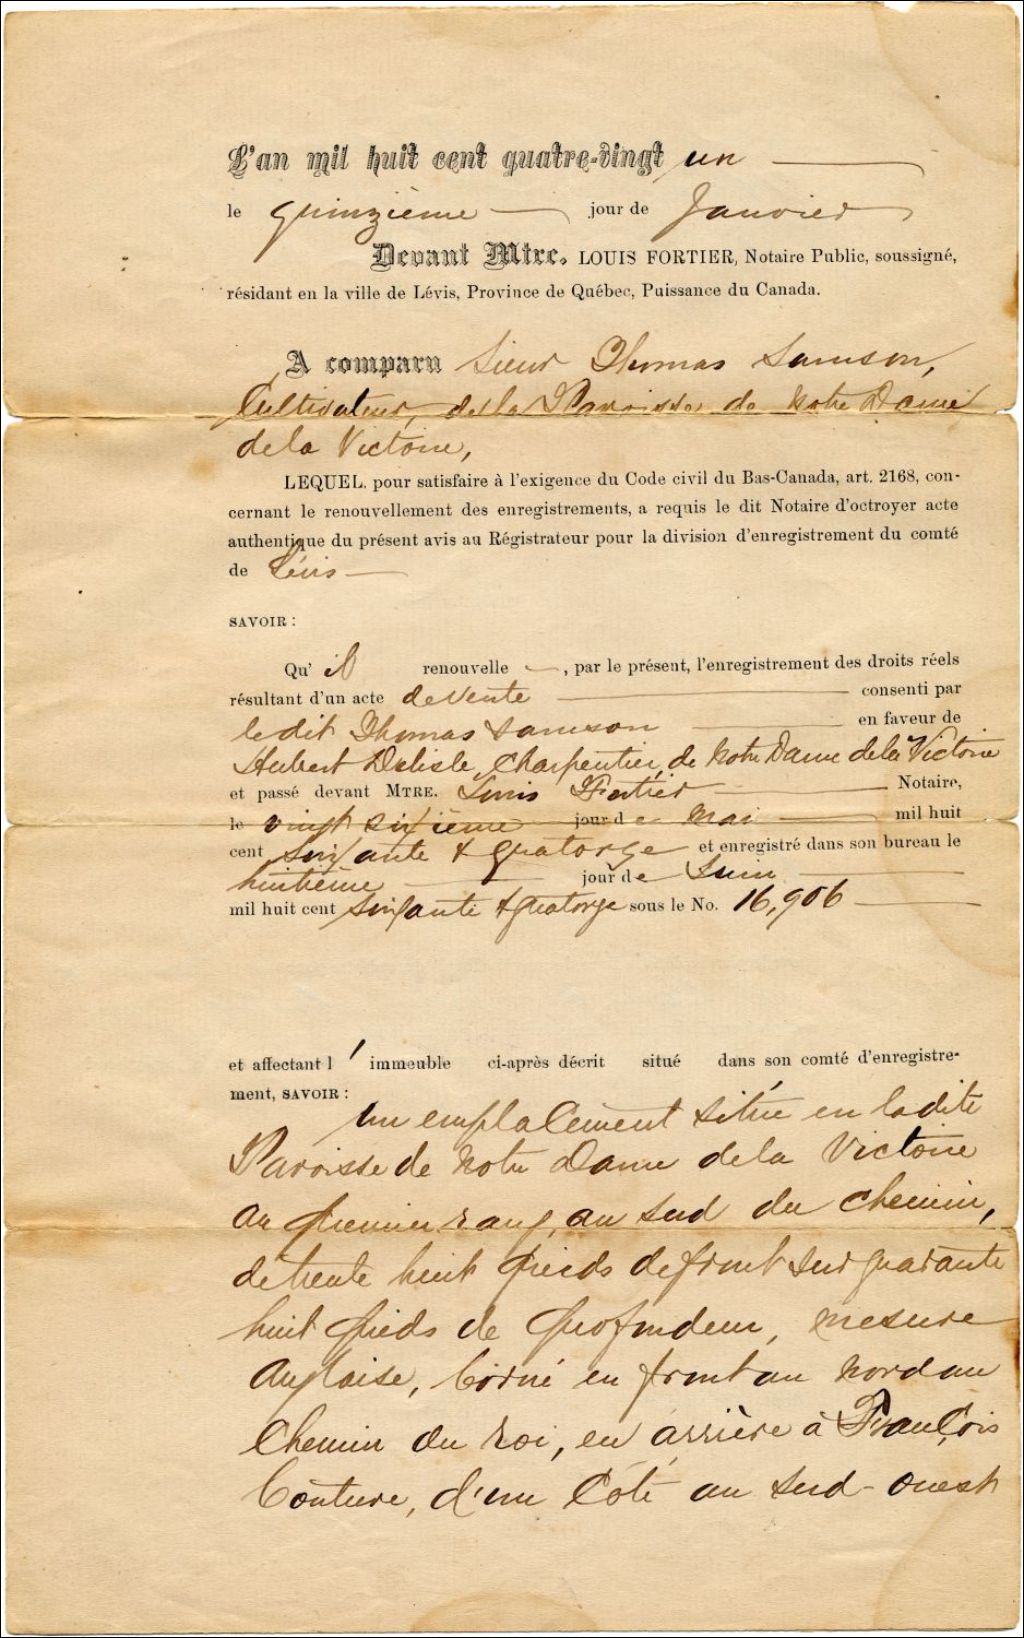 L'an mil huit cent quatre-vingt un
le quinzième jour de Janvier
Devant Mtre. LOUIS FORTIER, Notaire Public, soussigné,
résidant en la ville de Lévis, Province de Québec, Puissance du Canada.
A comparu Sieur Thomas Samson,
Cultivateur, de la Paroisse de Notre Dame
de la Victoire,
LEQUEL, pour satisfaire à l'exigence du Code civil du Bas-Canada, art. 2168, con-
cernant le renouvellement des enregistrements, a requis le dit Notaire d'octroyer acte
authentique du présent avis au Régistrateur pour la division d'enregistrement du comté
de Lévis
SAVOIR :
Qu' il renouvelle , par le présent, l'enregistrement des droits réels
résultant d'un acte de vente consenti par
le dit Thomas Samson en faveur de
Hubert Delisle, Charpentier, de Notre Dame de la Victoire
et passé devant MTRE. Louis Fortier Notaire,
le vingt sixième jour de Mai mil huit
cent soixante & quatorze et enregistré dans son bureau le
huitième jour de Juin
mil huit cent soixante & quatorze sous le No. 16,906
et affectant l' immeuble ci-après décrit situé dans son comté d'enregistre-
ment, SAVOIR :
Un emplacement situé en la dite
Paroisse de Notre Dame de la Victoire
au premier rang, au sud du chemin,
de trente huit pieds de front sur quarante
huit pieds de profondeur, mesure
anglaise, borné en front au nord au
Chemin du roi, en arrière à François
Couture, d'un Côté au sud-ouest